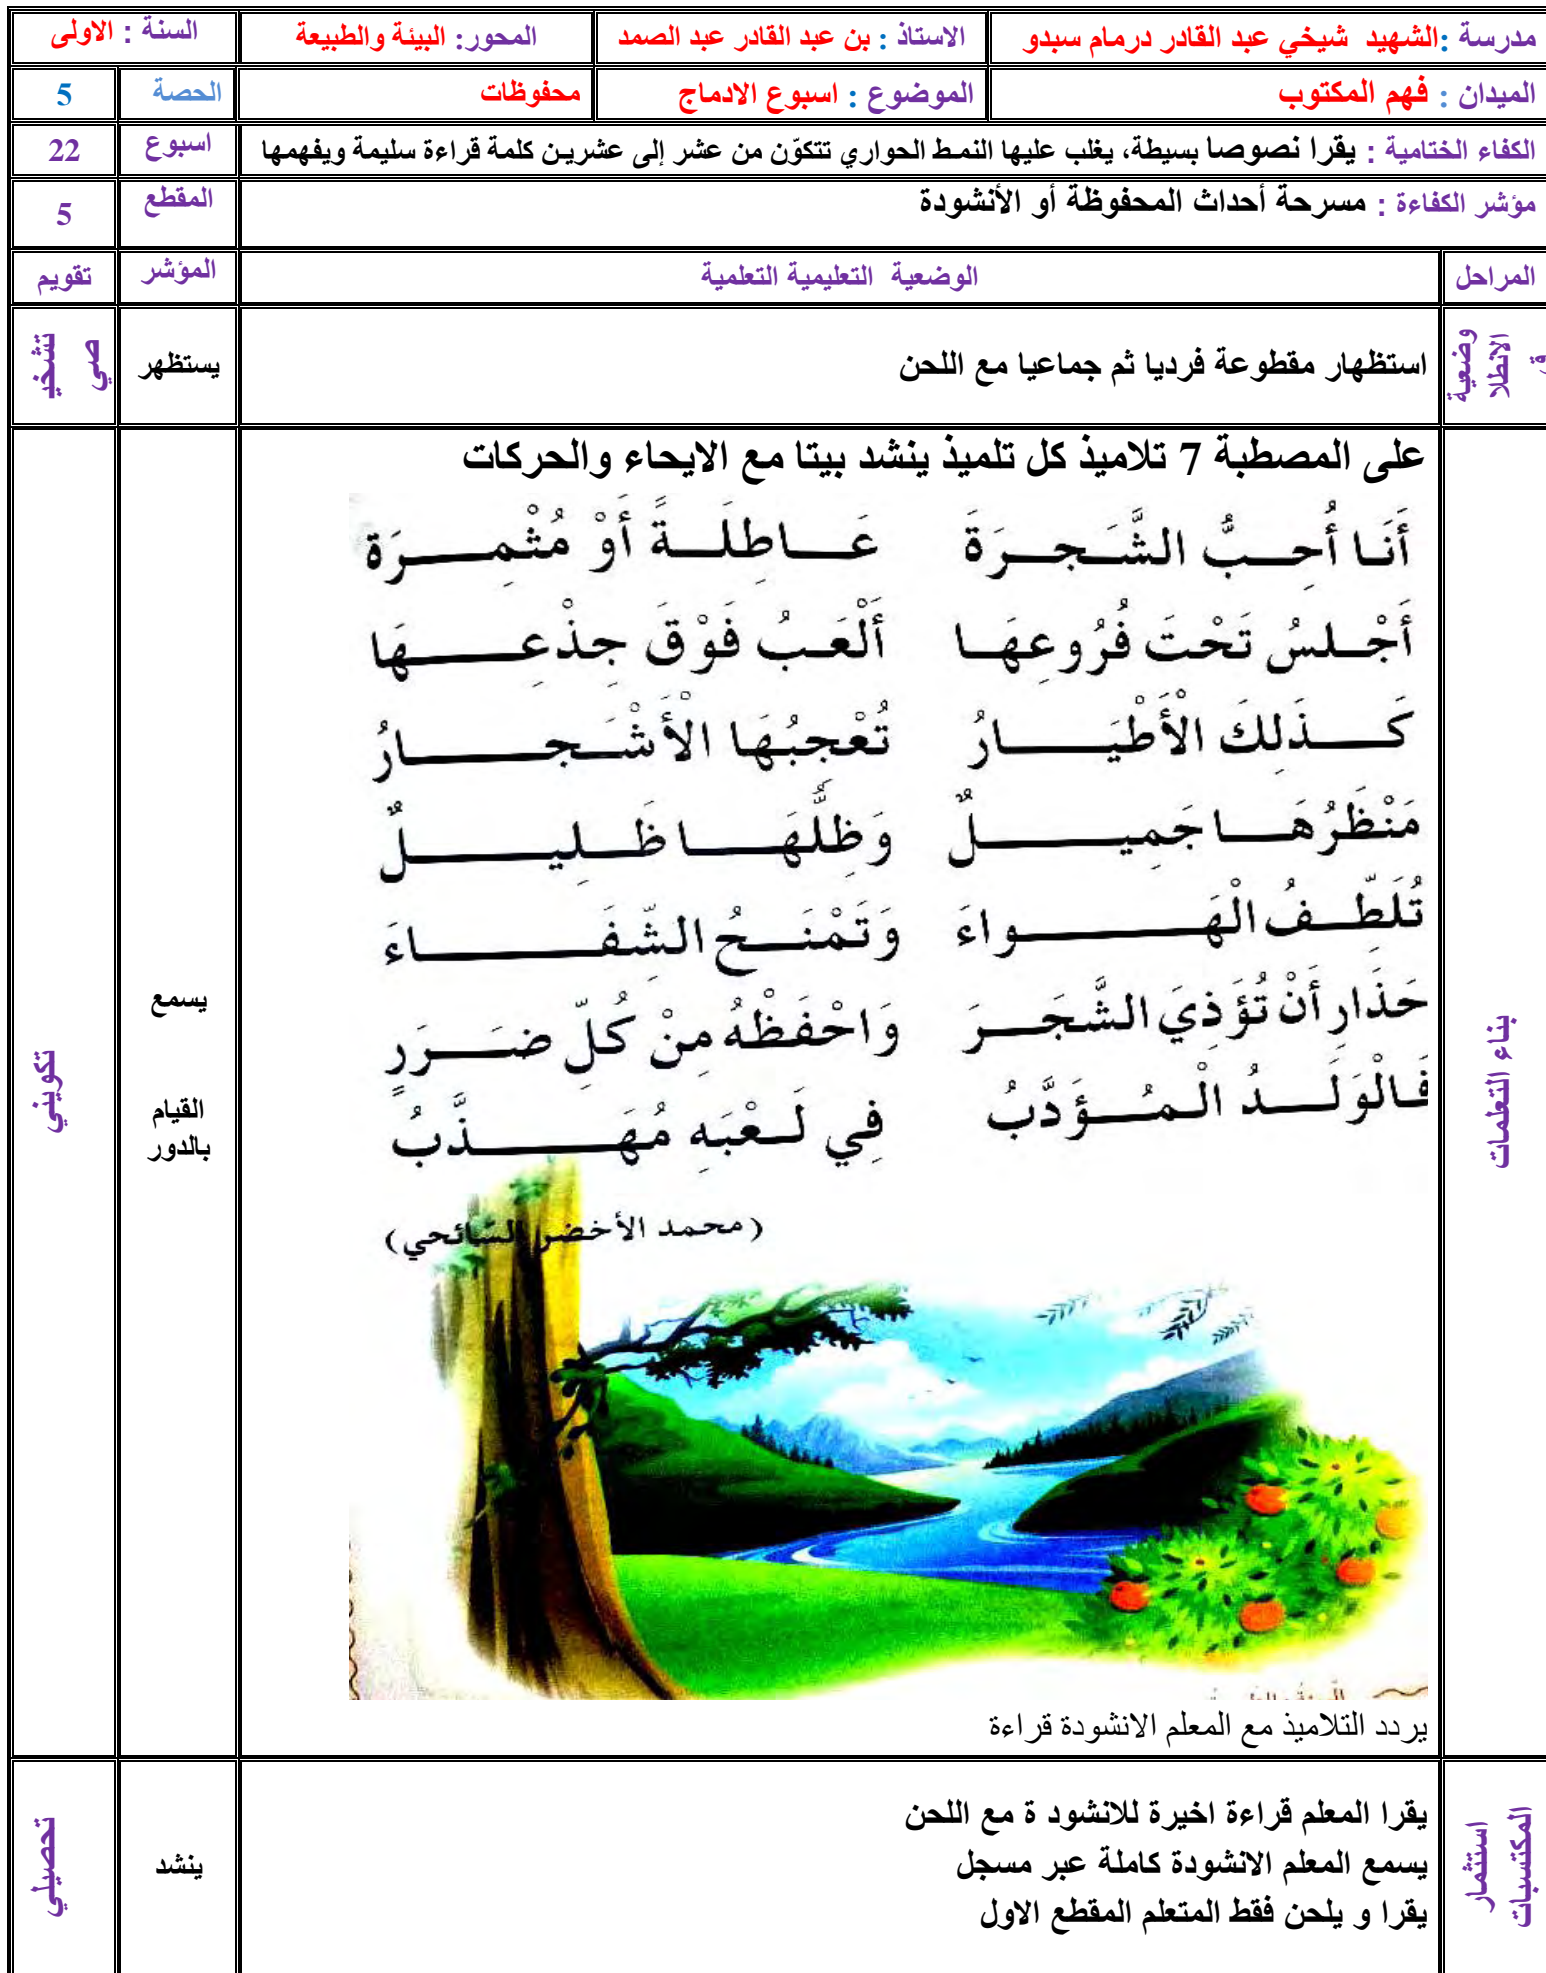 مدرسة :الشهيد شيخي عبد القادر درمام سبدو الاستاذ : بن عبد القادر عبد الصمد المحور: البيئة والطبيعة السنة : الاولى
الميدان : فهم المكتوب الموضوع : اسبوع الادماج محفوظات الحصة 5
الكفاء الختامية : يقرا نصوصا بسيطة، يغلب عليها النمط الحواري تتكوّن من عشر إلى عشرين كلمة قراءة سليمة ويفهمها اسبوع 22
مؤشر الكفاءة : مسرحة أحداث المحفوظة أو الأنشودة المقطع 5
المراحل الوضعية التعليمية التعلمية المؤشر تقويم
وضعية الانطلاق استظهار مقطوعة فرديا ثم جماعيا مع اللحن يستظهر تشخيصي
على المصطبة 7 تلاميذ كل تلميذ ينشد بيتا مع الايحاء والحركات
أَنَا أُحِبُّ الشَّجَرَةَ عَاطِلَةً أَوْ مُثْمِرَة
أَجْلِسُ تَحْتَ فُرُوعِهَا أَلْعَبُ فَوْقَ جِذْعِهَا
كَذَلِكَ الْأَطْيَارُ تُعْجِبُهَا الْأَشْجَارُ
مَنْظَرُهَا جَمِيلٌ وَظِلُّهَا ظَلِيلٌ
تُلَطِّفُ الْهَواءَ وَتَمْنَحُ الشِّفَاءَ
حَذَارِ أَنْ تُؤَذِيَ الشَّجَرَ وَاحْفَظْهُ مِنْ كُلِّ ضَرَرٍ
فَالْوَلَدُ الْمُؤَدَّبُ فِي لَعْبَهِ مُهَذَّبُ
(محمد الأخضر السّائحي)
يردد التلاميذ مع المعلم الانشودة قراءة
بناء التعلمات
يسمع
القيام
بالدور
تكويني
يقرا المعلم قراءة اخيرة للانشود ة مع اللحن
يسمع المعلم الانشودة كاملة عبر مسجل
يقرا و يلحن فقط المتعلم المقطع الاول
استثمار
المكتسبات
ينشد
تحصيلي